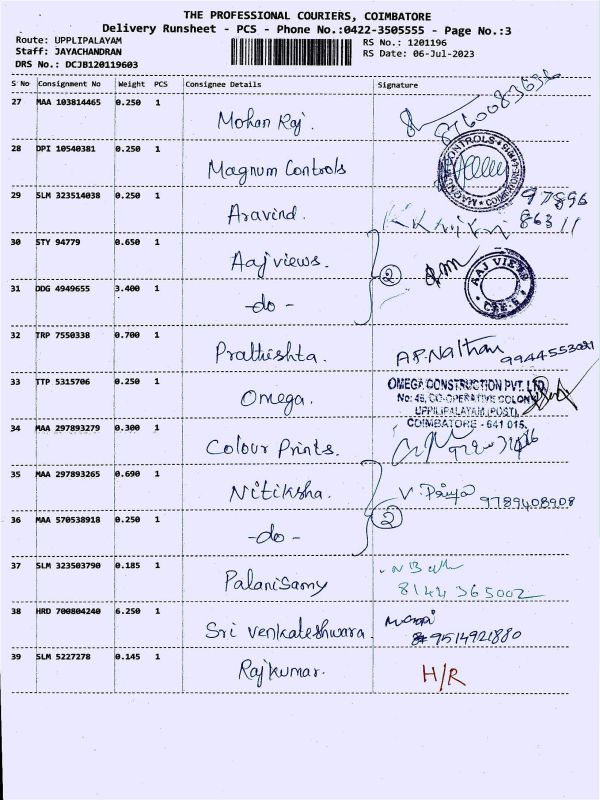 THE PROFESSIONAL COURIERS, COIMBATORE
Delivery Runsheet - PCS - Phone No.:0422-3505555 - Page No.:3
Route: UPPLIPALAYAM RS No.: 1201196
Staff: JAYACHANDRAN RS Date: 06-Jul-2023
DRS No.: DCJB120119603
S No Consignment No Weight PCS Consignee Details Signature
27 MAA 103814465 0.250 1 Mohan Raj.
28 DPI 10540381 0.250 1 Magnum Controls
29 SLM 323514038 0.250 1 Aravind. 97896
86311
30 STY 94779 0.650 1 Aaj views. 2 AAJ VIEWS
31 DDG 4949655 3.400 1 -do-
32 TRP 7550338 0.700 1 Prathishta. A.P.Nathan
33 TTP 5315706 0.250 1 Omega. OMEGA CONSTRUCTION PVT. LTD.
No: 46, CO-OPERATIVE COLONY
UPPILIPALAYAM (POST),
COIMBATORE - 641 015.
34 MAA 297893279 0.300 1 Colour Prints.
35 MAA 297893265 0.690 1 Nitiksha. V. Priya 9789408908
36 MAA 570538918 0.250 1 -do- 2
37 SLM 323503790 0.185 1 Palanisamy
8144365002
38 HRD 700804240 6.250 1 Sri Venkateshwara.
9514921880
39 SLM 5227278 0.145 1 Rajkumar. H/R